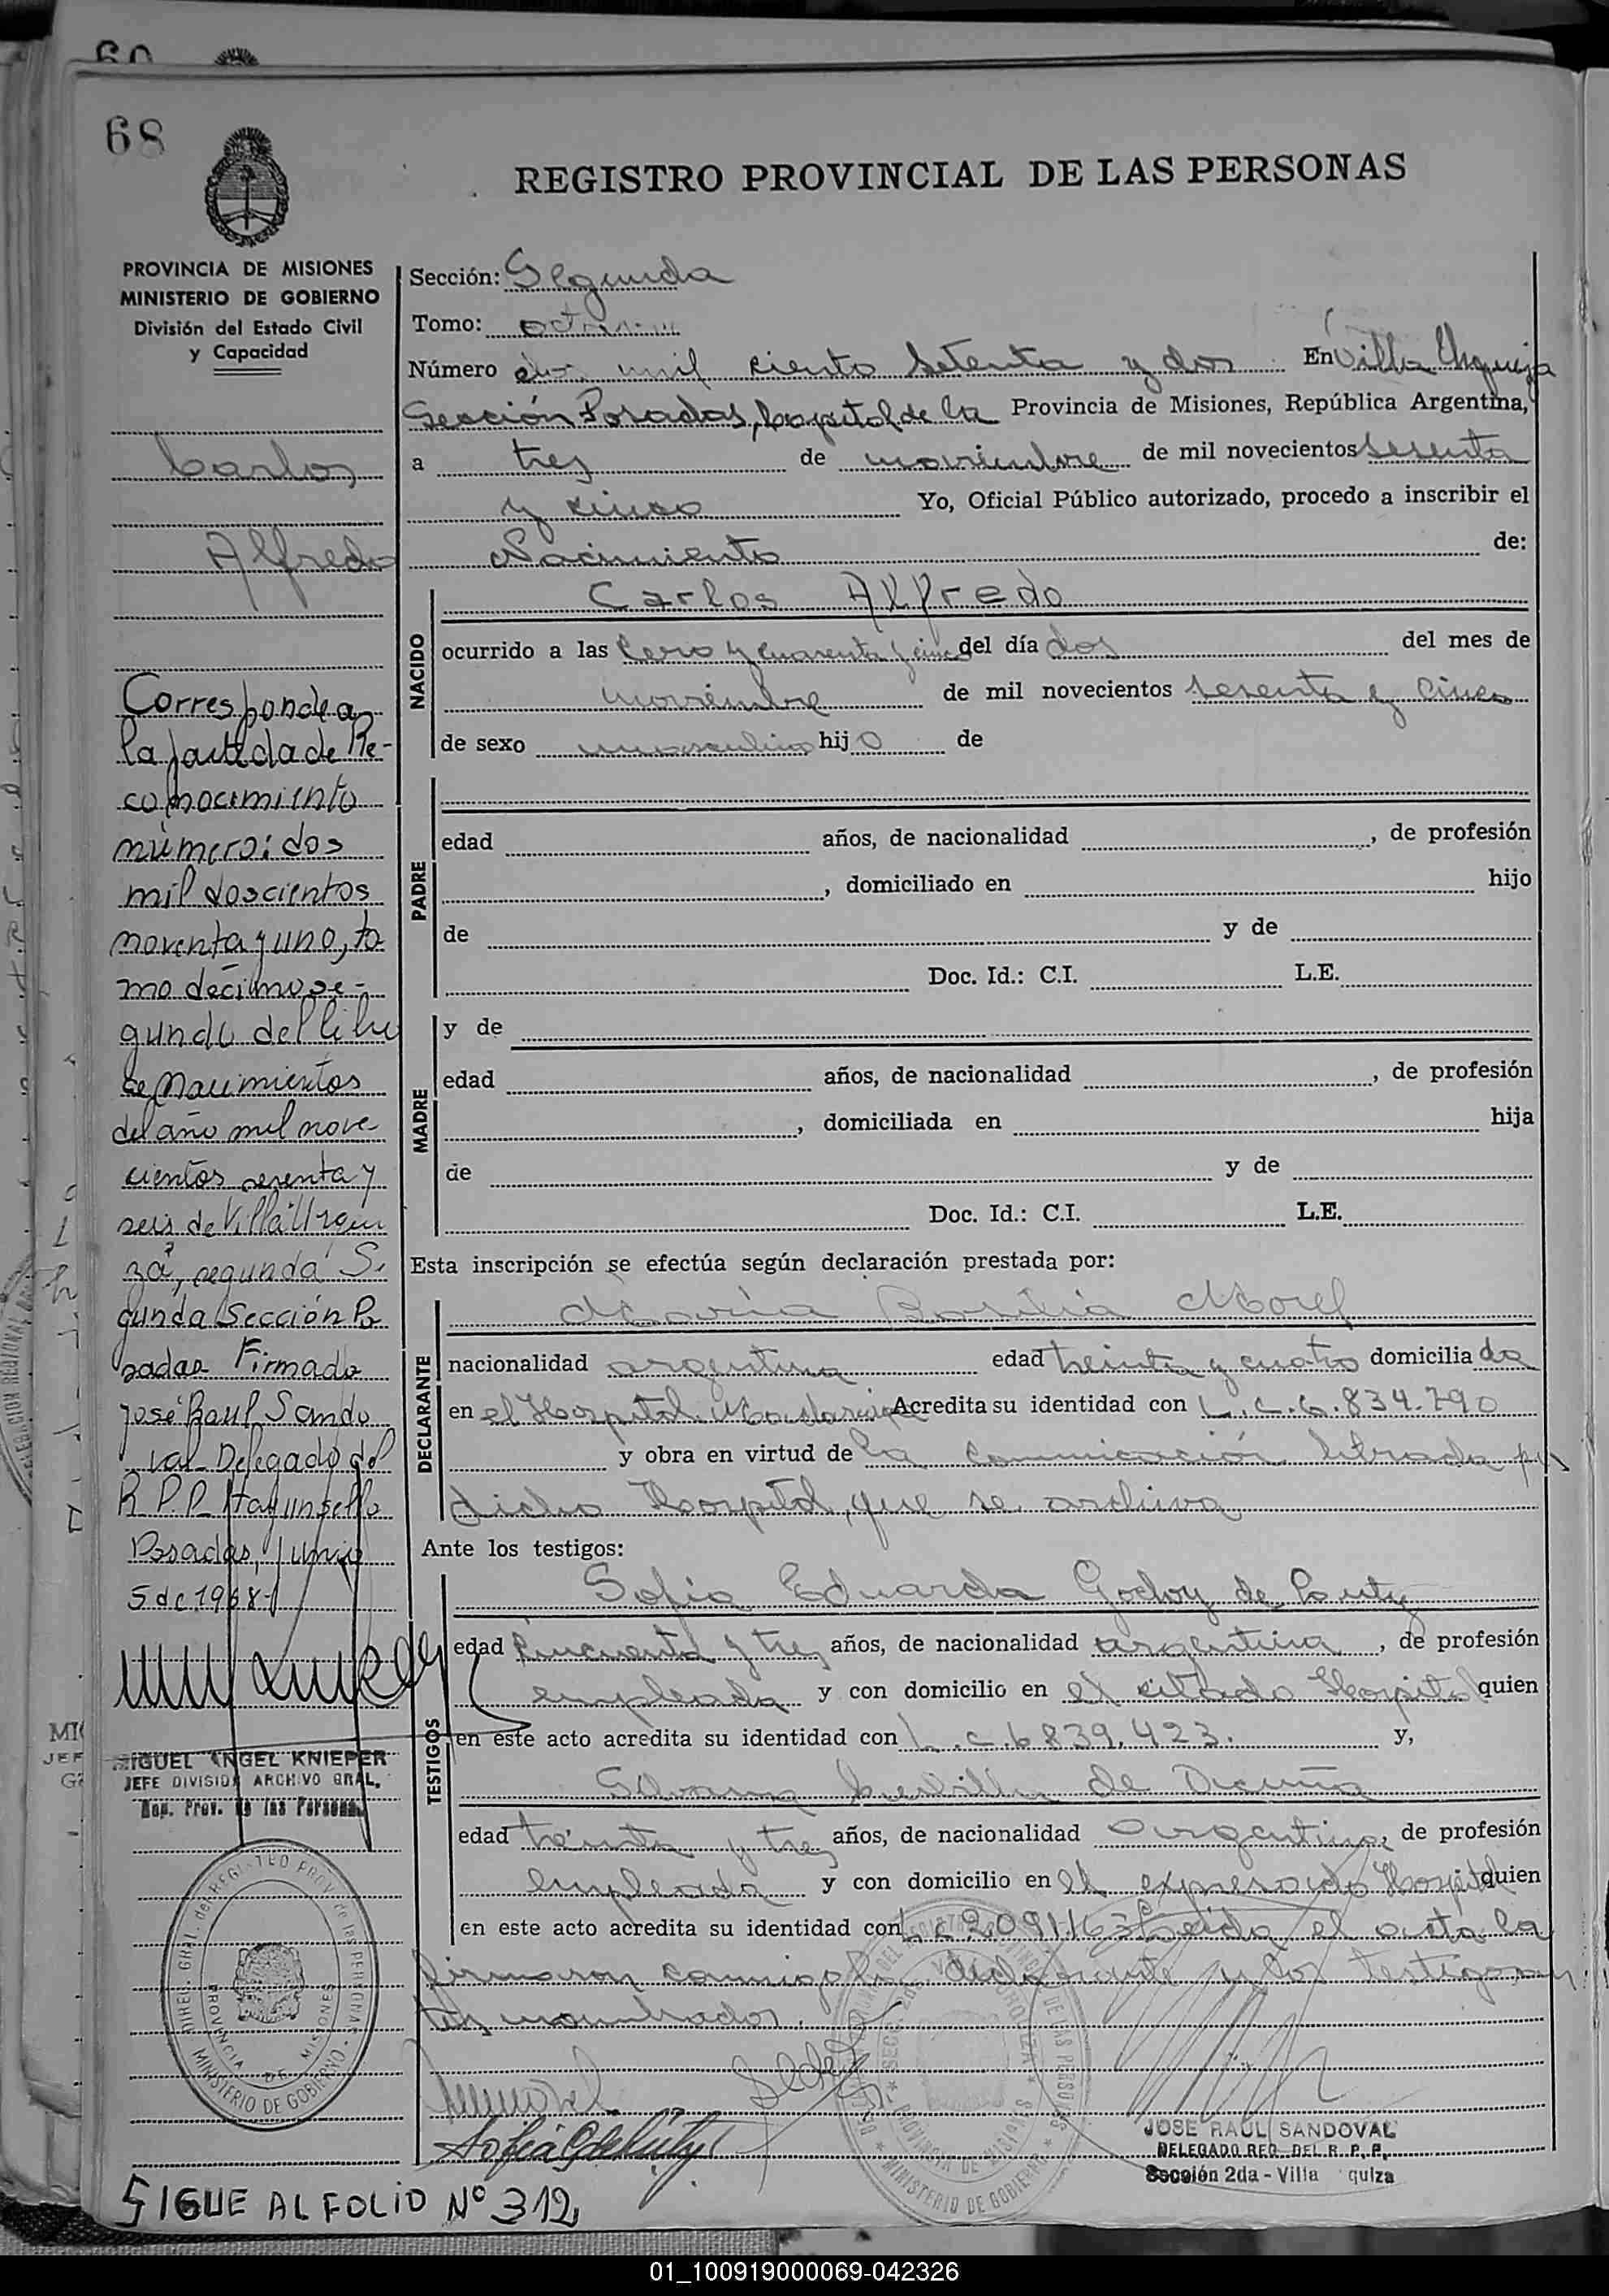 68
REGISTRO PROVINCIAL DE LAS PERSONAS
PROVINCIA DE MISIONES
MINISTERIO DE GOBIERNO
División del Estado Civil
y Capacidad
Carlos
Alfredo
Corresponde a
la partida de Re-
conocimiento
número: dos
mil doscientos
noventa y uno, to
mo décimo se-
gundo del libro
de Nacimientos
del año mil nove
cientos sesenta y
seis de Villa Urqui
za, segunda Se
gunda Sección Po
sadas Firmado
José Raul Sando
val Delegado del
R.P.P. Hay un sello
Posadas, Junio
5 de 1968
MIGUEL ANGEL KNIEPER
JEFE DIVISION ARCHIVO GRAL.
Rep. Prov. de las Personas
Sección: Segunda
Tomo:
Número mil ciento setenta y dos En Villa Urquiza
Sección Posadas, Capital de la Provincia de Misiones, República Argentina,
a tres de noviembre de mil novecientos sesenta
y cinco Yo, Oficial Público autorizado, procedo a inscribir el
Nacimiento de:
NACIDO
Carlos Alfredo
ocurrido a las cero y cuarenta y cinco del día dos del mes de
noviembre de mil novecientos sesenta y cinco
de sexo masculino hijo de
PADRE
edad años, de nacionalidad , de profesión
, domiciliado en hijo
de y de
Doc. Id.: C.I. L.E.
MADRE
y de
edad años, de nacionalidad , de profesión
, domiciliada en hija
de y de
Doc. Id.: C.I. L.E.
Esta inscripción se efectúa según declaración prestada por:
DECLARANTE
María Basilia Morel
nacionalidad argentina edad treinta y cuatro domiciliada
en el Hospital Madariaga Acredita su identidad con L.C. 6.834.790
y obra en virtud de la comunicación librada por
dicho Hospital, que se archiva
Ante los testigos:
TESTIGOS
Sofia Eduarda Godoy de
edad cincuenta y tres años, de nacionalidad argentina, de profesión
empleada y con domicilio en el citado Hospital quien
en este acto acredita su identidad con L.C. 6839.423. y,
de
edad treinta y tres años, de nacionalidad argentina, de profesión
empleada y con domicilio en el expresado Hospital quien
en este acto acredita su identidad con Leida el acta la
firmaron conmigo la declarante y los testigos
nombrados.
JOSE RAUL SANDOVAL
DELEGADO REG. DEL R. P. P.
Sección 2da - Villa quiza
DIREC. GRAL. del REGISTRO PROV. de las PERSONAS
PROVINCIA DE MISIONES
MINISTERIO DE GOBIERNO
SIGUE AL FOLIO Nº 312
01_100919000069-042326